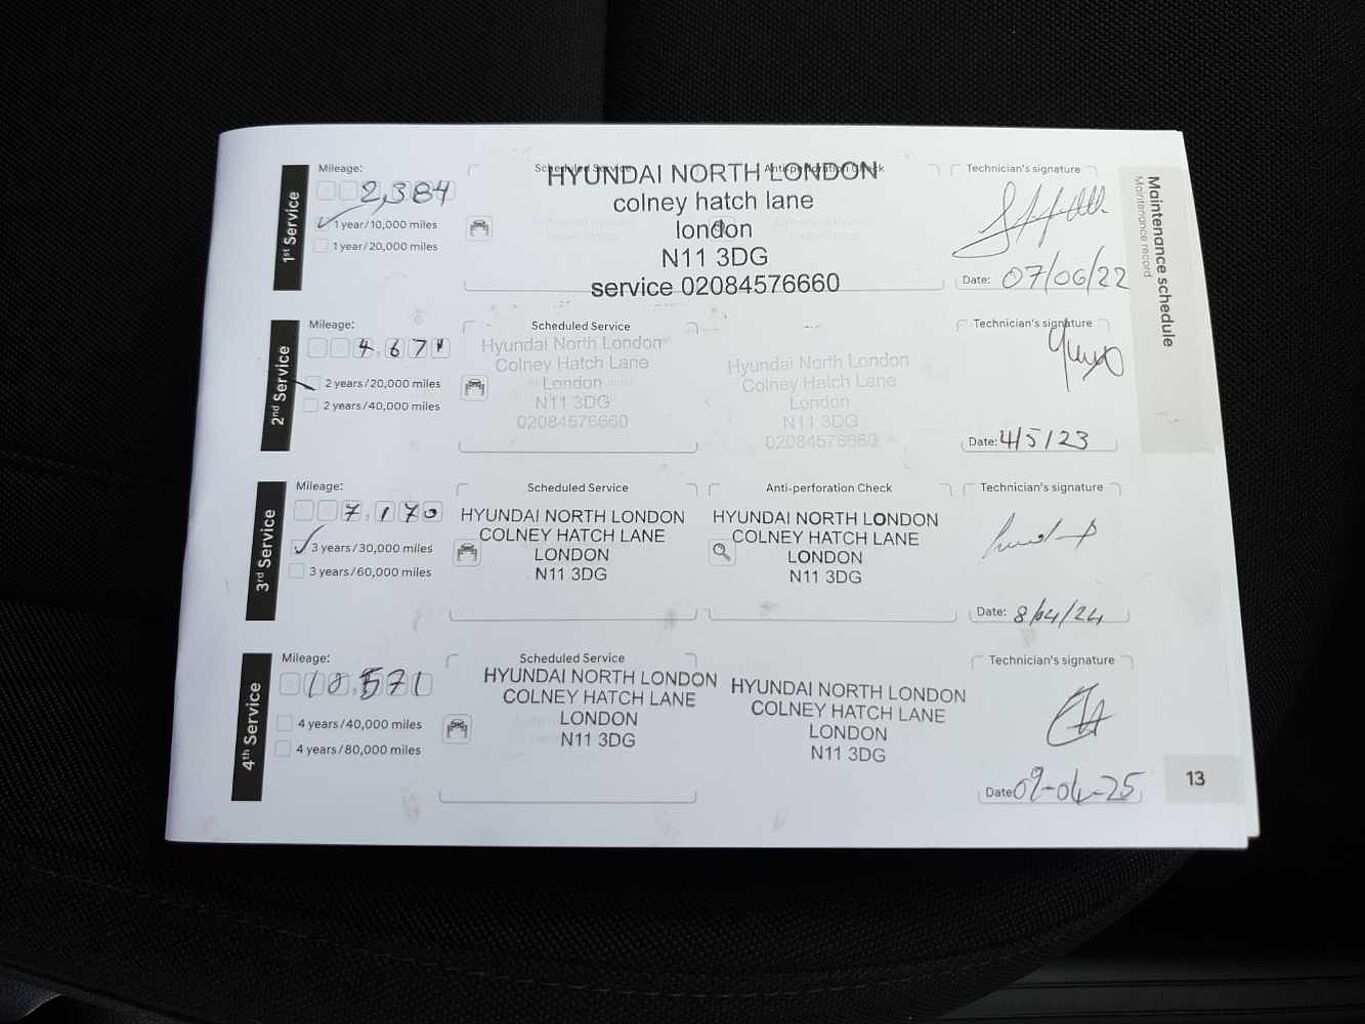 Maintenance schedule
Maintenance record
1st Service
Mileage:
2,384
1 year/10,000 miles
1 year/20,000 miles
Scheduled Service
Anti-perforation Check
HYUNDAI NORTH LONDON
colney hatch lane
london
N11 3DG
service 02084576660
Technician's signature
Date: 07/06/22
2nd Service
Mileage:
4,671
2 years/20,000 miles
2 years/40,000 miles
Scheduled Service
Hyundai North London
Colney Hatch Lane
London
N11 3DG
02084576660
Hyundai North London
Colney Hatch Lane
London
N11 3DG
02084576660
Technician's signature
Date: 4/5/23
3rd Service
Mileage:
7,170
3 years/30,000 miles
3 years/60,000 miles
Scheduled Service
HYUNDAI NORTH LONDON
COLNEY HATCH LANE
LONDON
N11 3DG
Anti-perforation Check
HYUNDAI NORTH LONDON
COLNEY HATCH LANE
LONDON
N11 3DG
Technician's signature
Date: 8/04/24
4th Service
Mileage:
10,571
4 years/40,000 miles
4 years/80,000 miles
Scheduled Service
HYUNDAI NORTH LONDON
COLNEY HATCH LANE
LONDON
N11 3DG
HYUNDAI NORTH LONDON
COLNEY HATCH LANE
LONDON
N11 3DG
Technician's signature
Date 09-04-25
13